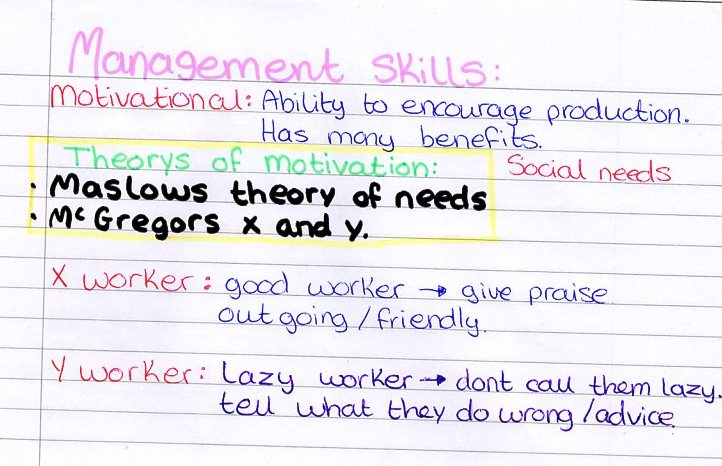 Management Skills:
Motivational: Ability to encourage production.
Has many benefits.
Theorys of motivation:
Social needs
· Maslows theory of needs
· McGregors x and y.
X worker: good worker → give praise
outgoing/friendly.
Y worker: Lazy worker → dont call them lazy.
tell what they do wrong/advice